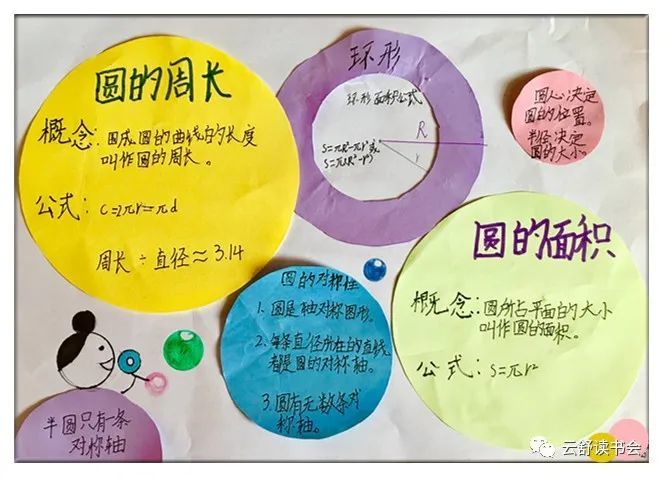 圆的周长
概念:围成圆的曲线的长度
叫作圆的周长。
公式:C=2πr=πd
周长÷直径≈3.14
环形
环形面积公式
S=πR²-πr²或
S=π(R²-r²)
R
r
圆心决定
圆的位置。
半径决定
圆的大小。
圆的面积
概念:圆所占平面的大小
叫作圆的面积。
公式:S=πr²
圆的对称性
1.圆是轴对称图形。
2.每条直径所在的直线
都是圆的对称轴。
3.圆有无数条对
称轴。
半圆只有一条
对称轴
云舒读书会